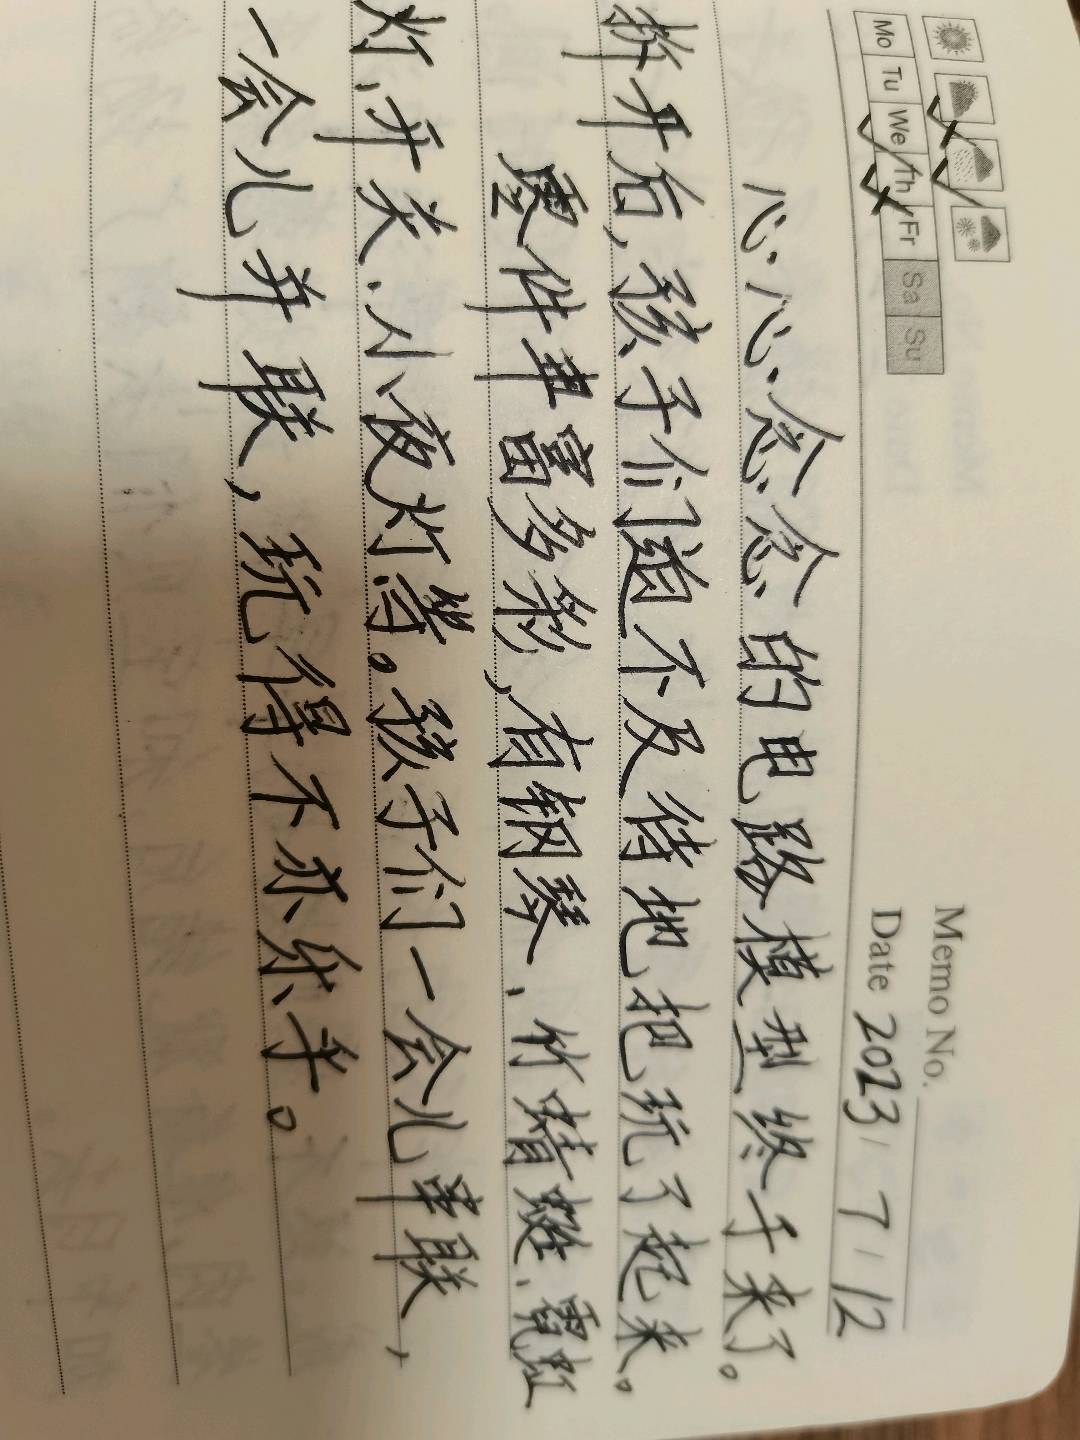 Memo No.
Mo Tu We Th Fr Sa Su
Date 2023 / 7 / 12
心心念念的电路模型终于来了。
拆开后,孩子们迫不及待地把玩了起来。
零件丰富多彩,有钢琴、竹蜻蜓、霓虹
灯、开关、小夜灯等。孩子们一会儿串联,
一会儿并联,玩得不亦乐乎。